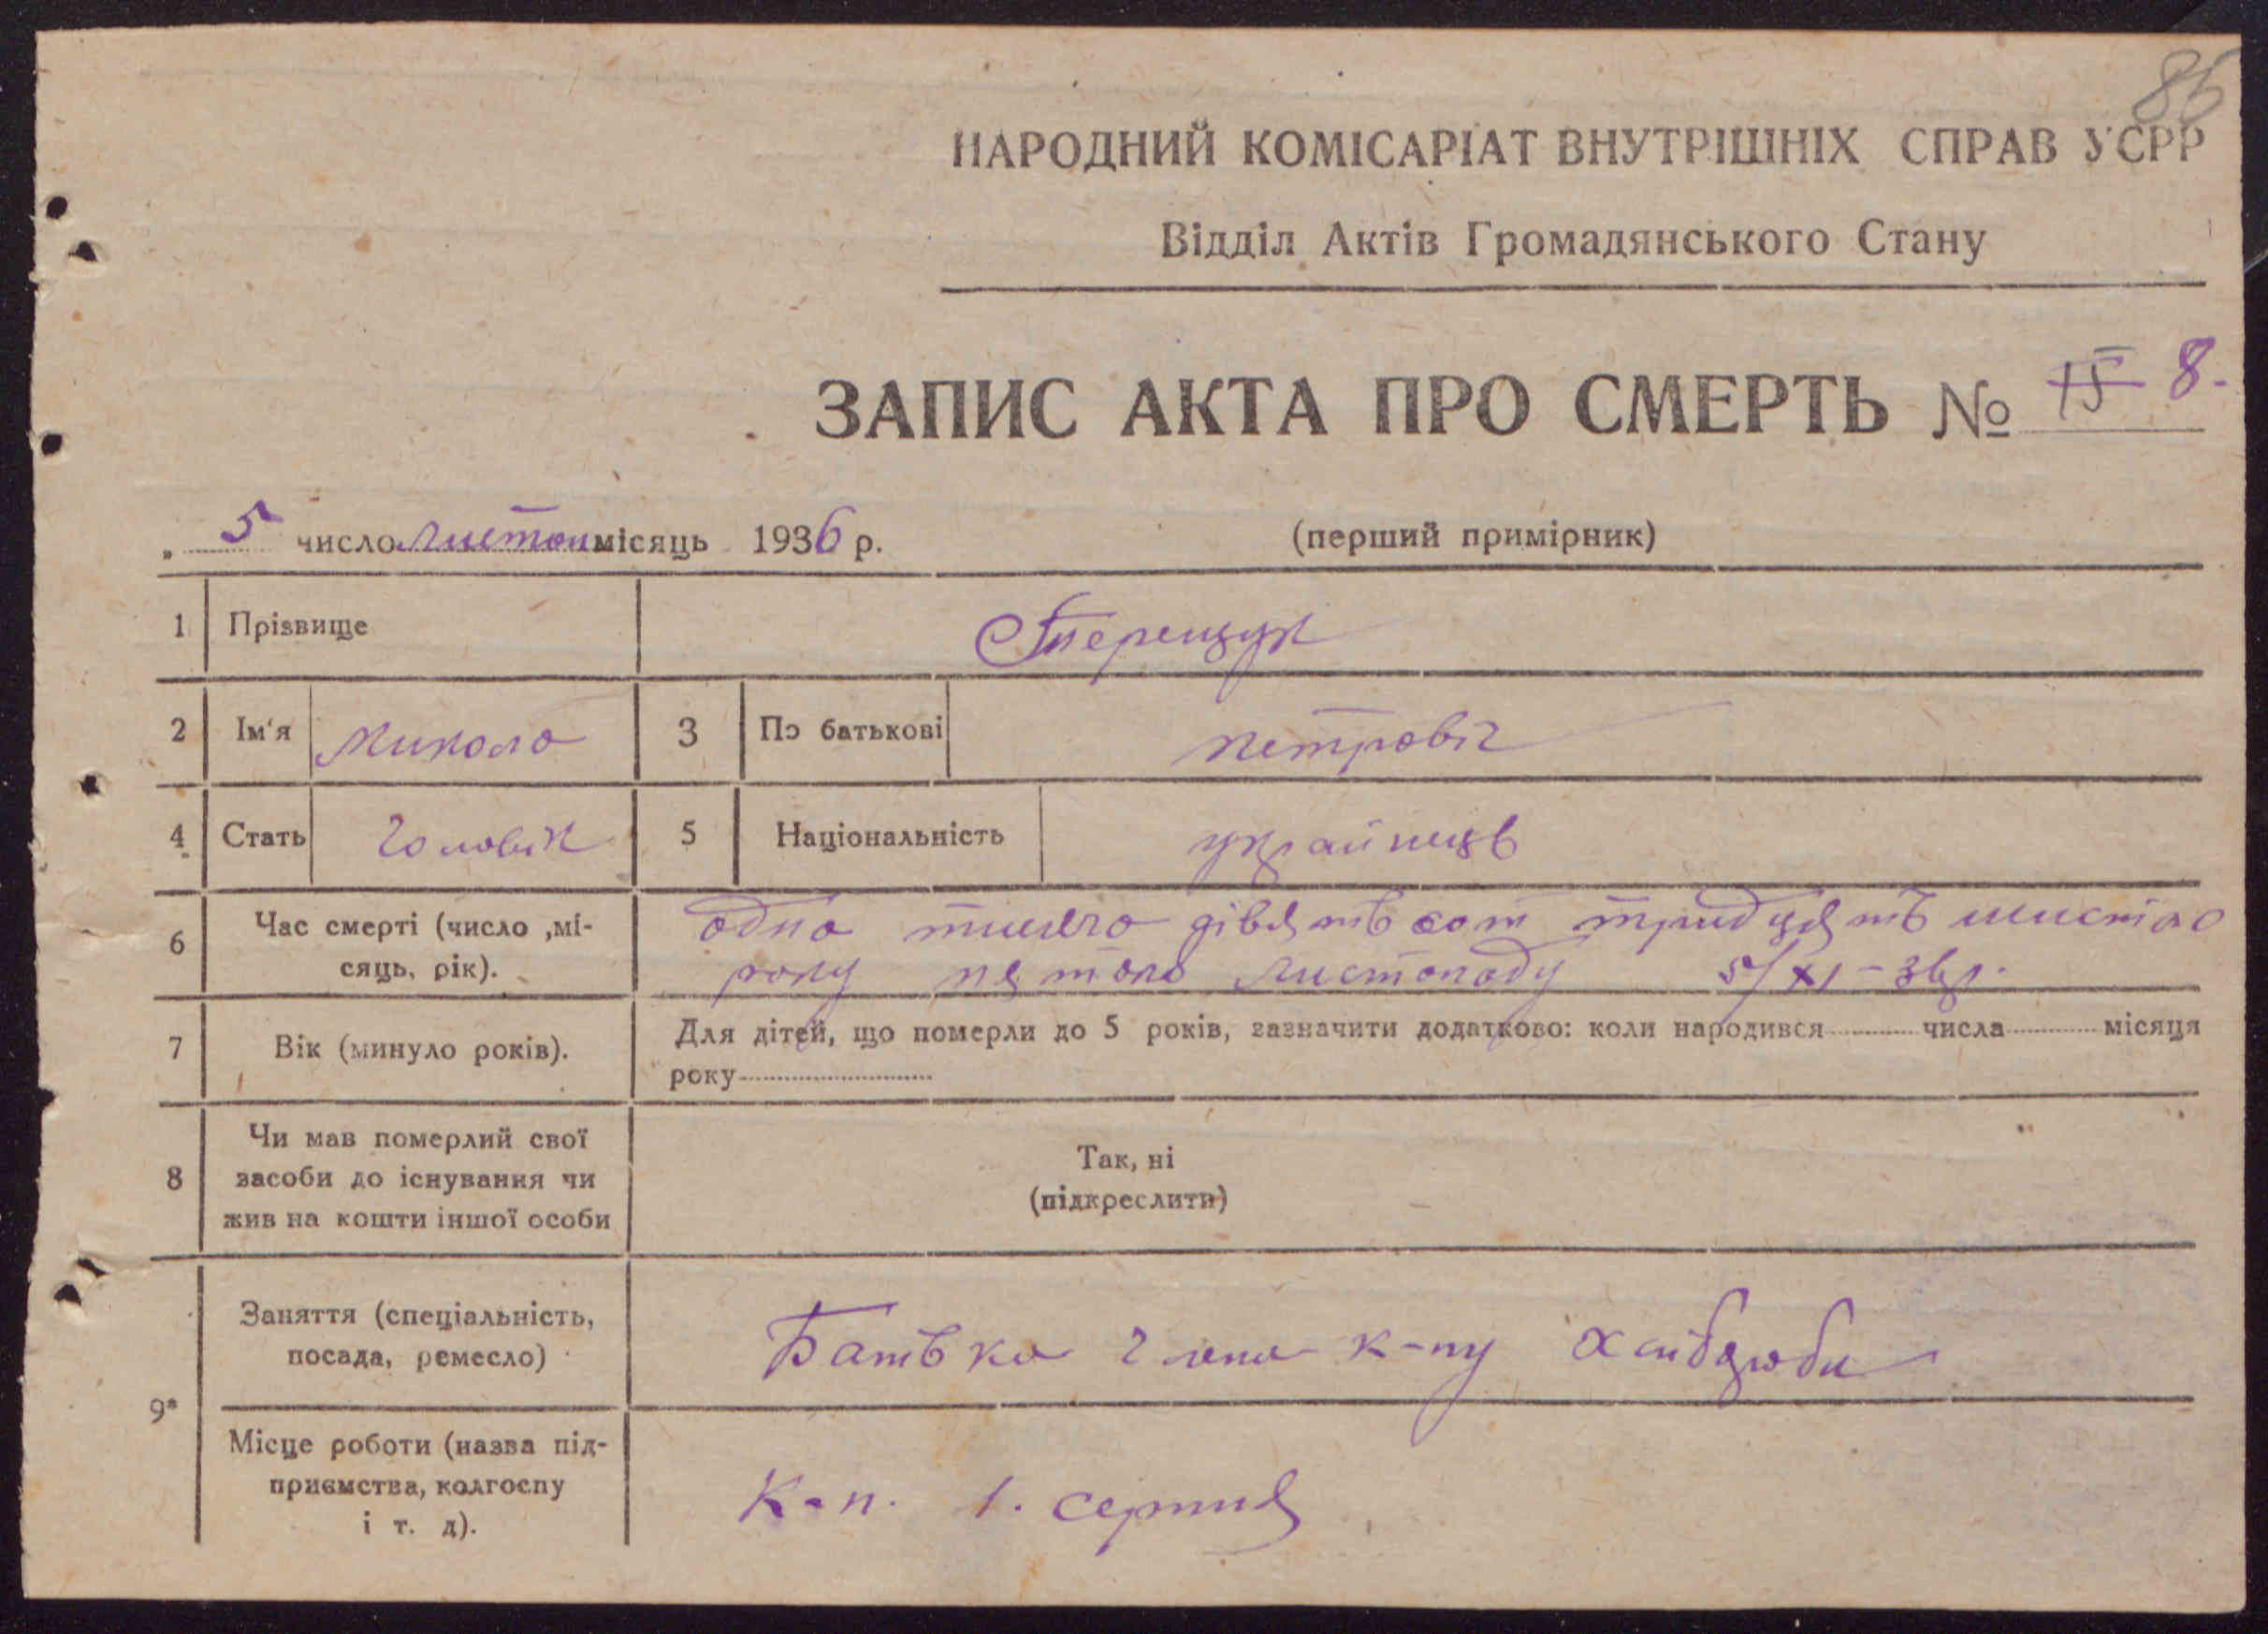 86
НАРОДНИЙ КОМІСАРІАТ ВНУТРІШНІХ СПРАВ УСРР
Відділ Актів Громадянського Стану
ЗАПИС АКТА ПРО СМЕРТЬ № 15 8.
„ 5 число листоп місяць 1936 р. (перший примірник)
1 Прізвище Терещук
2 Ім'я Микола 3 По батькові петровіч
4 Стать Чоловік 5 Національність українець
6 Час смерті (число ,мі-
сяць, рік).
одна тисяча дівятьсот тридцять шистого
року пятого листопаду 5/XI-36р.
7 Вік (минуло років). Для дітей, що померли до 5 років, зазначити додатково: коли народився числа місяця
року
8 Чи мав померлий свої
засоби до існування чи
жив на кошти іншої особи
Так, ні
(підкреслити)
9*
Заняття (спеціальність,
посада, ремесло)
Батько члена к-пу
Місце роботи (назва під-
приємства, колгоспу
і т. д).
К-п. 1. серпня